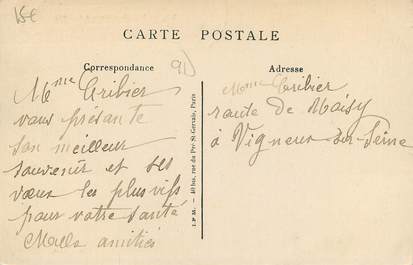 15€
CARTE POSTALE
Correspondance
91
Adresse
Mme Cribier
vous présante
son meilleur
souvenir et ses
vœux les plus vifs
pour votre santé
Mille amitiés
I. P. M. — 40 bis, rue du Pré-St-Gervais, Paris
Mme Cribier
route de Maisy
à Vigneux sur Seine